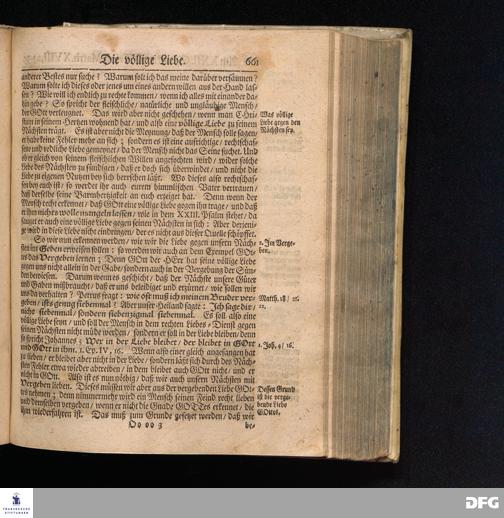 Die völlige Liebe. 661
anderer Bestes nur suche? Warum solt ich das meine darüber versäumen?
Warum solte ich dieses oder jenes um eines andern willen aus der Hand las-
sen? Wie will ich endlich zu rechte kommen/ wenn ich alles mit einander da-
hin gebe? So spricht der fleischliche/ natürliche und ungläubige Mensch/
der GOtt verleugnet. Das wird aber nicht geschehen/ wenn man CHri-
stum in seinem Hertzen wohnend hat/ und also eine völlige Liebe zu seinem
Nächsten trägt. Es ist aber nicht die Meynung/ daß der Mensch solle sagen/
er habe keine Fehler mehr an sich; sondern es ist eine aufrichtige/ rechtschaf-
fene und redliche Liebe gemeynet/ da der Mensch nicht das Seine suchet. Und
ober gleich von seinem fleischlichen Willen angefochten wird/ wider solche
Liebe des Nächsten zu sündigen/ daß er doch sich überwindet/ und nicht die
Liebe zu eigenen Nutzen bey sich herrschen läßt. Wo dieses also rechtschaf-
fen bey euch ist/ so werdet ihr auch eurem himmlischen Vater vertrauen/
daß derselbe seine Barmhertzigkeit an euch erzeiget hat. Denn wenn der
Mensch recht erkennet/ daß GOtt eine völlige Liebe gegen ihn trage/ und daß
er ihm nichts wolle mangeln lassen/ wie in dem XXIII. Psalm stehet/ da
sauget er auch eine völlige Liebe gegen seinen Nächsten in sich: Aber derjeni-
ge wird in diese Liebe nicht eindringen/ der es nicht aus dieser Quelle schöpffet.
So wie nun erkennen werden/ wie wir die Liebe gegen unsern Näch-
sten im Geben erweisen sollen: so werden wir auch an dem Exempel GOt-
tes das Vergeben lernen; Denn GOtt der HErr hat seine völlige Liebe
gegen uns nicht allein in der Gabe/ sondern auch in der Vergebung der Sün-
den bewiesen. Darum wenn es geschicht/ daß der Nächste unsere Güter
und Gaben mißbraucht/ daß er uns beleidiget und erzürnet/ wie sollen wir
uns da verhalten? Petrus fragt: wie oft muß ich meinem Bruder ver-
geben/ ists gnug siebenmal? Aber unser Heiland sagte: Ich sage dir/
nicht siebenmal/ sondern siebenzigmal siebenmal. Es soll also eine
völlige Liebe seyn/ und soll der Mensch in dem rechten Liebes-Dienst gegen
seinen Nächsten nicht müde werden/ sondern er soll in der Liebe bleiben/ denn
so spricht Johannes: Wer in der Liebe bleibet/ der bleibet in GOtt
und GOtt in ihm. 1. Ep. IV, 16. Wenn also einer gleich angefangen hat
zu lieben/ er bleibet aber nicht in der Liebe/ sondern läßt sich durch des Näch-
sten Fehler etwa wieder abtreiben/ in dem bleibet auch GOtt nicht/ und er
nicht in GOtt. Also ist es nun nöthig/ daß wir auch unsern Nächsten mit
Vergeben lieben. Dieses müssen wir aber aus der vergebenden Liebe GOt-
tes nehmen; denn nimmermehr wird ein Mensch seinen Feind recht lieben
und demselben vergeben/ wenn er nicht die Gnade GOTTes erkennet/ die
ihm wiederfahren ist. Das muß zum Grunde gesetzet werden/ daß wir
Oo oo 3 be-
Was völlige
Liebe gegen den
Nächsten sey.
2. Im Verge-
ben.
Matth. 18/ 21.
22.
1. Joh. 4/ 16.
Dessen Grund
ist die verge-
bende Liebe
GOttes.
FRANCKESCHE
STIFTUNGEN
DFG